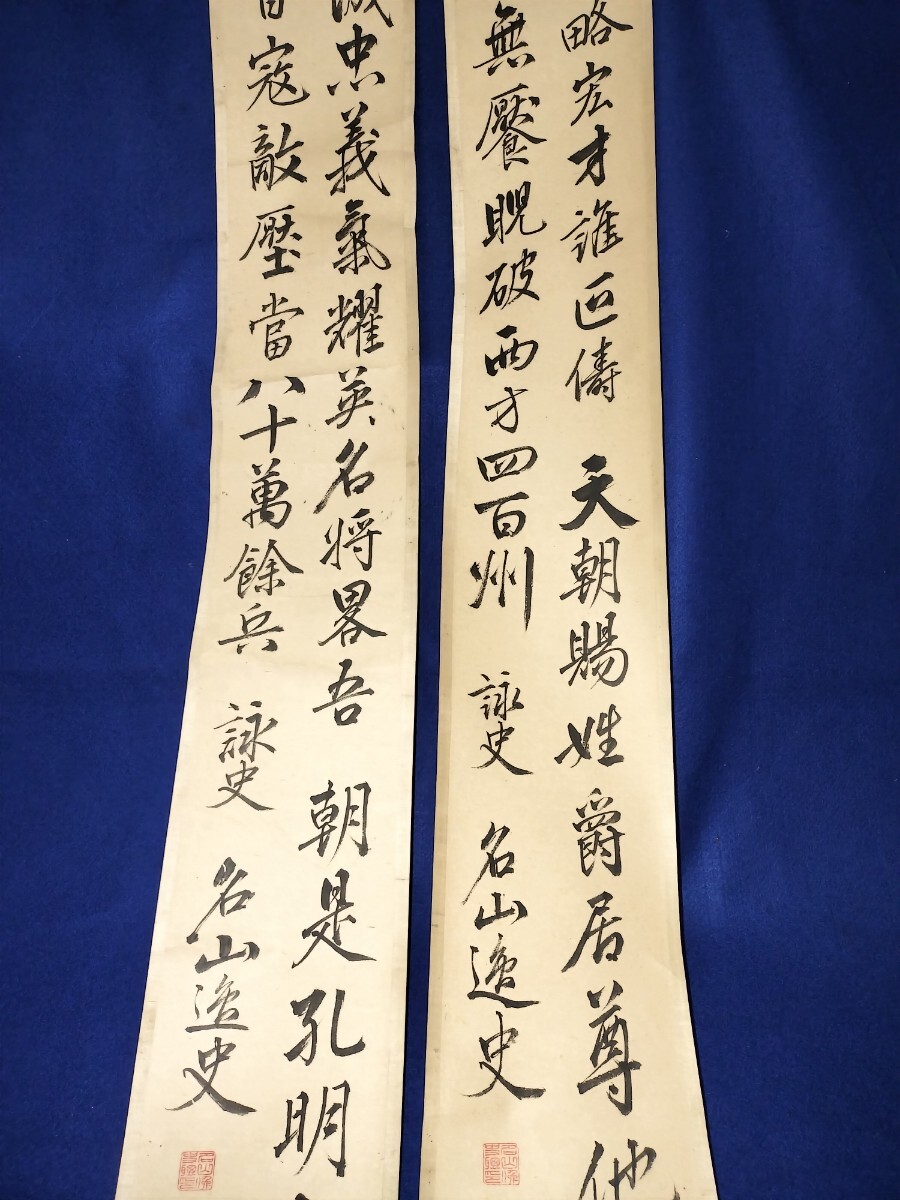 略宏才誰匹儔 天朝賜姓爵居尊
無饜睨破西方四百州 詠史 名山逸史
忠義氣耀英名将畧吾 朝是孔明
寇敵壓當八十萬餘兵 詠史 名山逸史